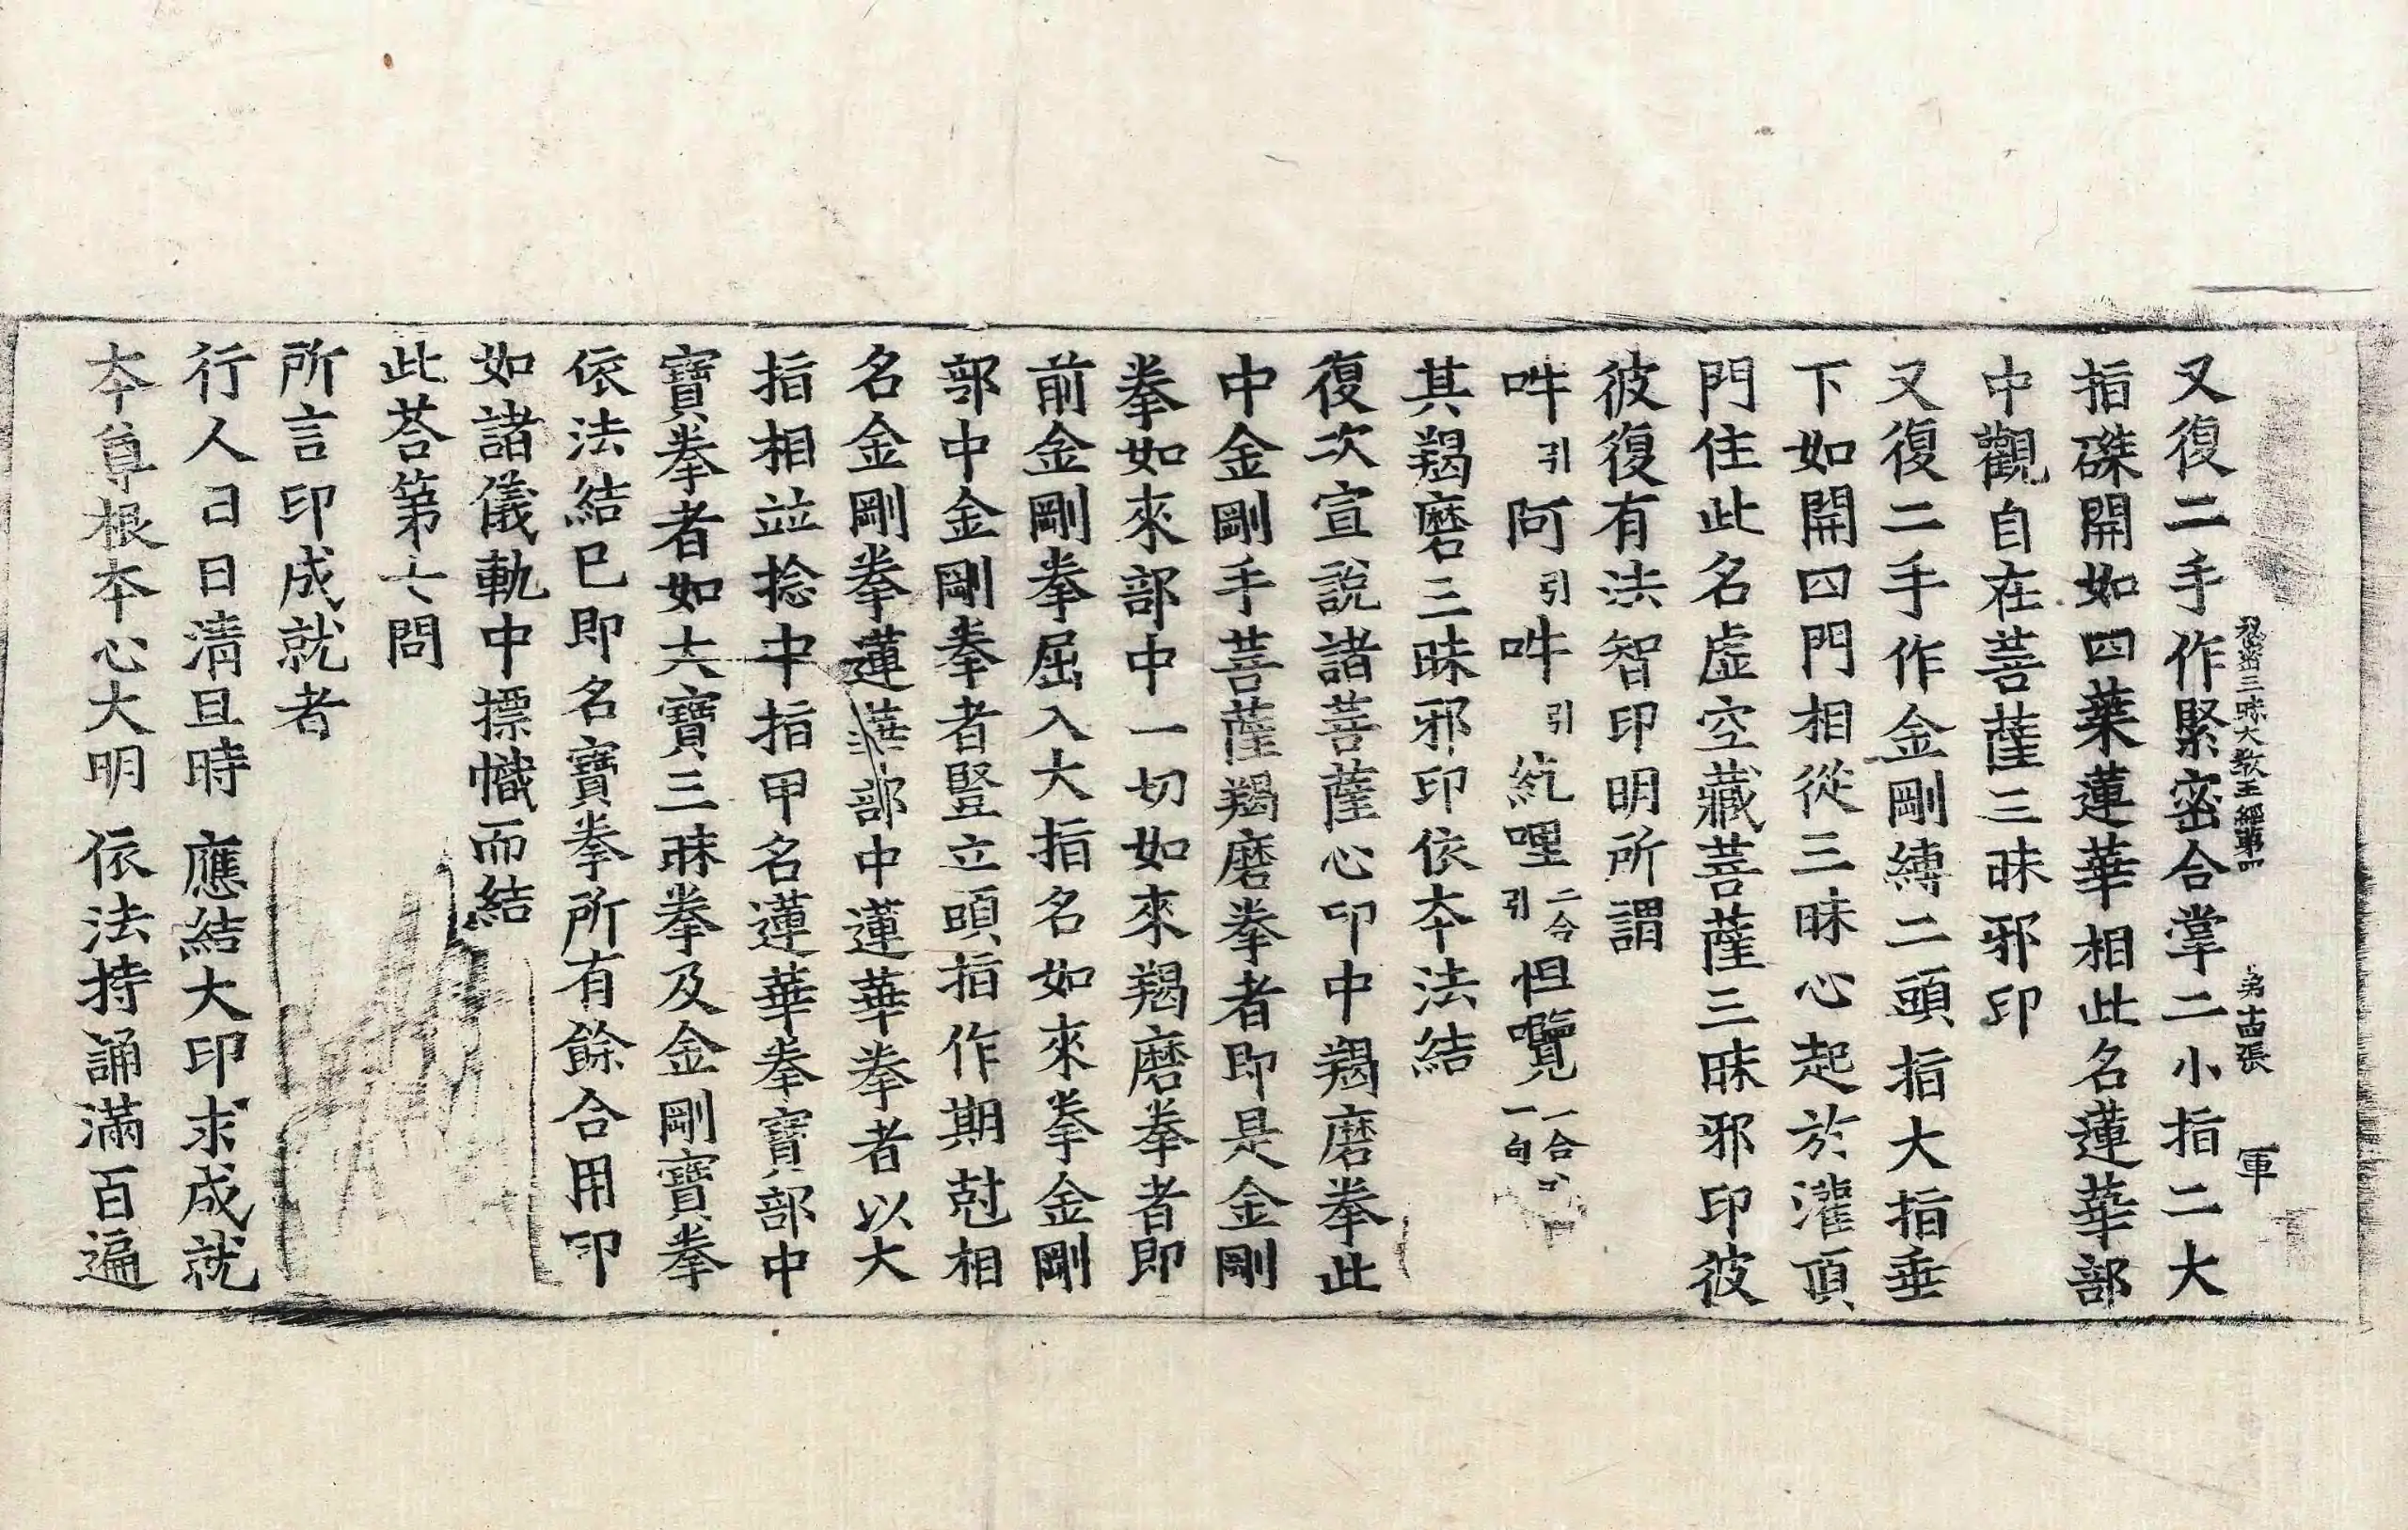 秘密三昧大教王經第四 第十四張 軍
又復二手作緊密合掌二小指二大
指磔開如四葉蓮華相此名蓮華部
中觀自在菩薩三昧邪印
又復二手作金剛縛二頭指大指垂
下如開四門相從三昧心起於灌頂
門住此名虛空藏菩薩三昧邪印彼
彼復有法智印明所謂
吽引阿引吽引紇哩二合引怛囕二合一句
其羯磨三昧邪印依本法結
復次宣說諸菩薩心印中羯磨拳此
中金剛手菩薩羯磨拳者即是金剛
拳如來部中一切如來羯磨拳者即
前金剛拳屈入大指名如來拳金剛
部中金剛拳者豎立頭指作期尅相
名金剛拳蓮華部中蓮華拳者以大
指相竝捻中指甲名蓮華拳寶部中
寶拳者如大寶三昧拳及金剛寶拳
依法結已即名寶拳所有餘合用印
如諸儀軌中摽幟而結
此荅第六問
所言印成就者
行人日日清旦時 應結大印求成就
本尊根本心大明 依法持誦滿百遍